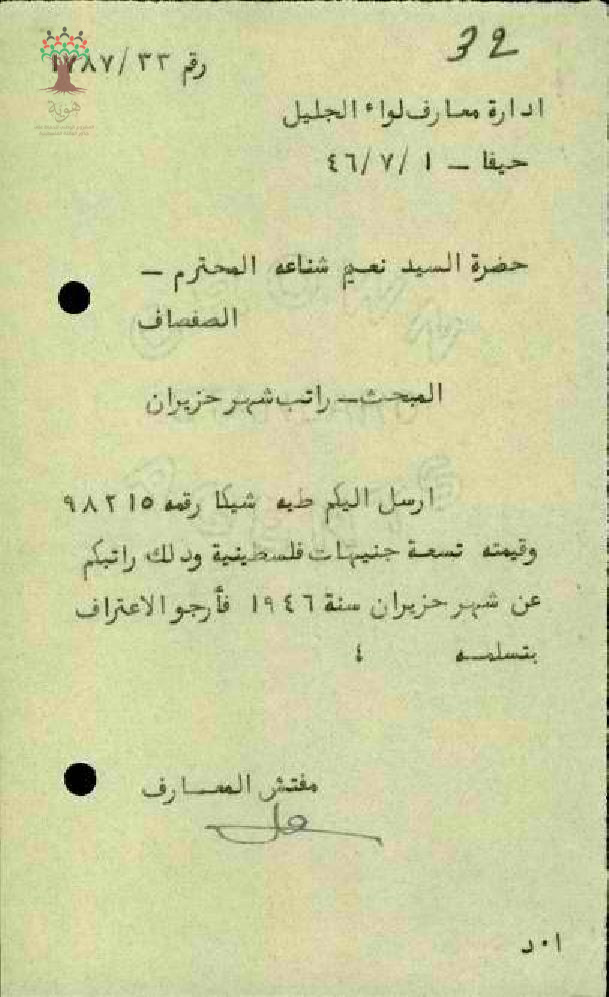 32
رقم ١٧٨٧/٣٣
هوية
ادارة معارف لواء الجليل
حيفا – ٤٦/٧/١
حضرة السيد نعيم شناعه المحترم –
الصفصاف
المبحث – راتب شهر حزيران
ارسل اليكم طيه شيكا رقمه ٩٨٢١٥
وقيمته تسعة جنيهات فلسطينية وذلك راتبكم
عن شهر حزيران سنة ١٩٤٦ فأرجو الاعتراف
بتسلمه ٤
مفتش المعارف
ا٠د